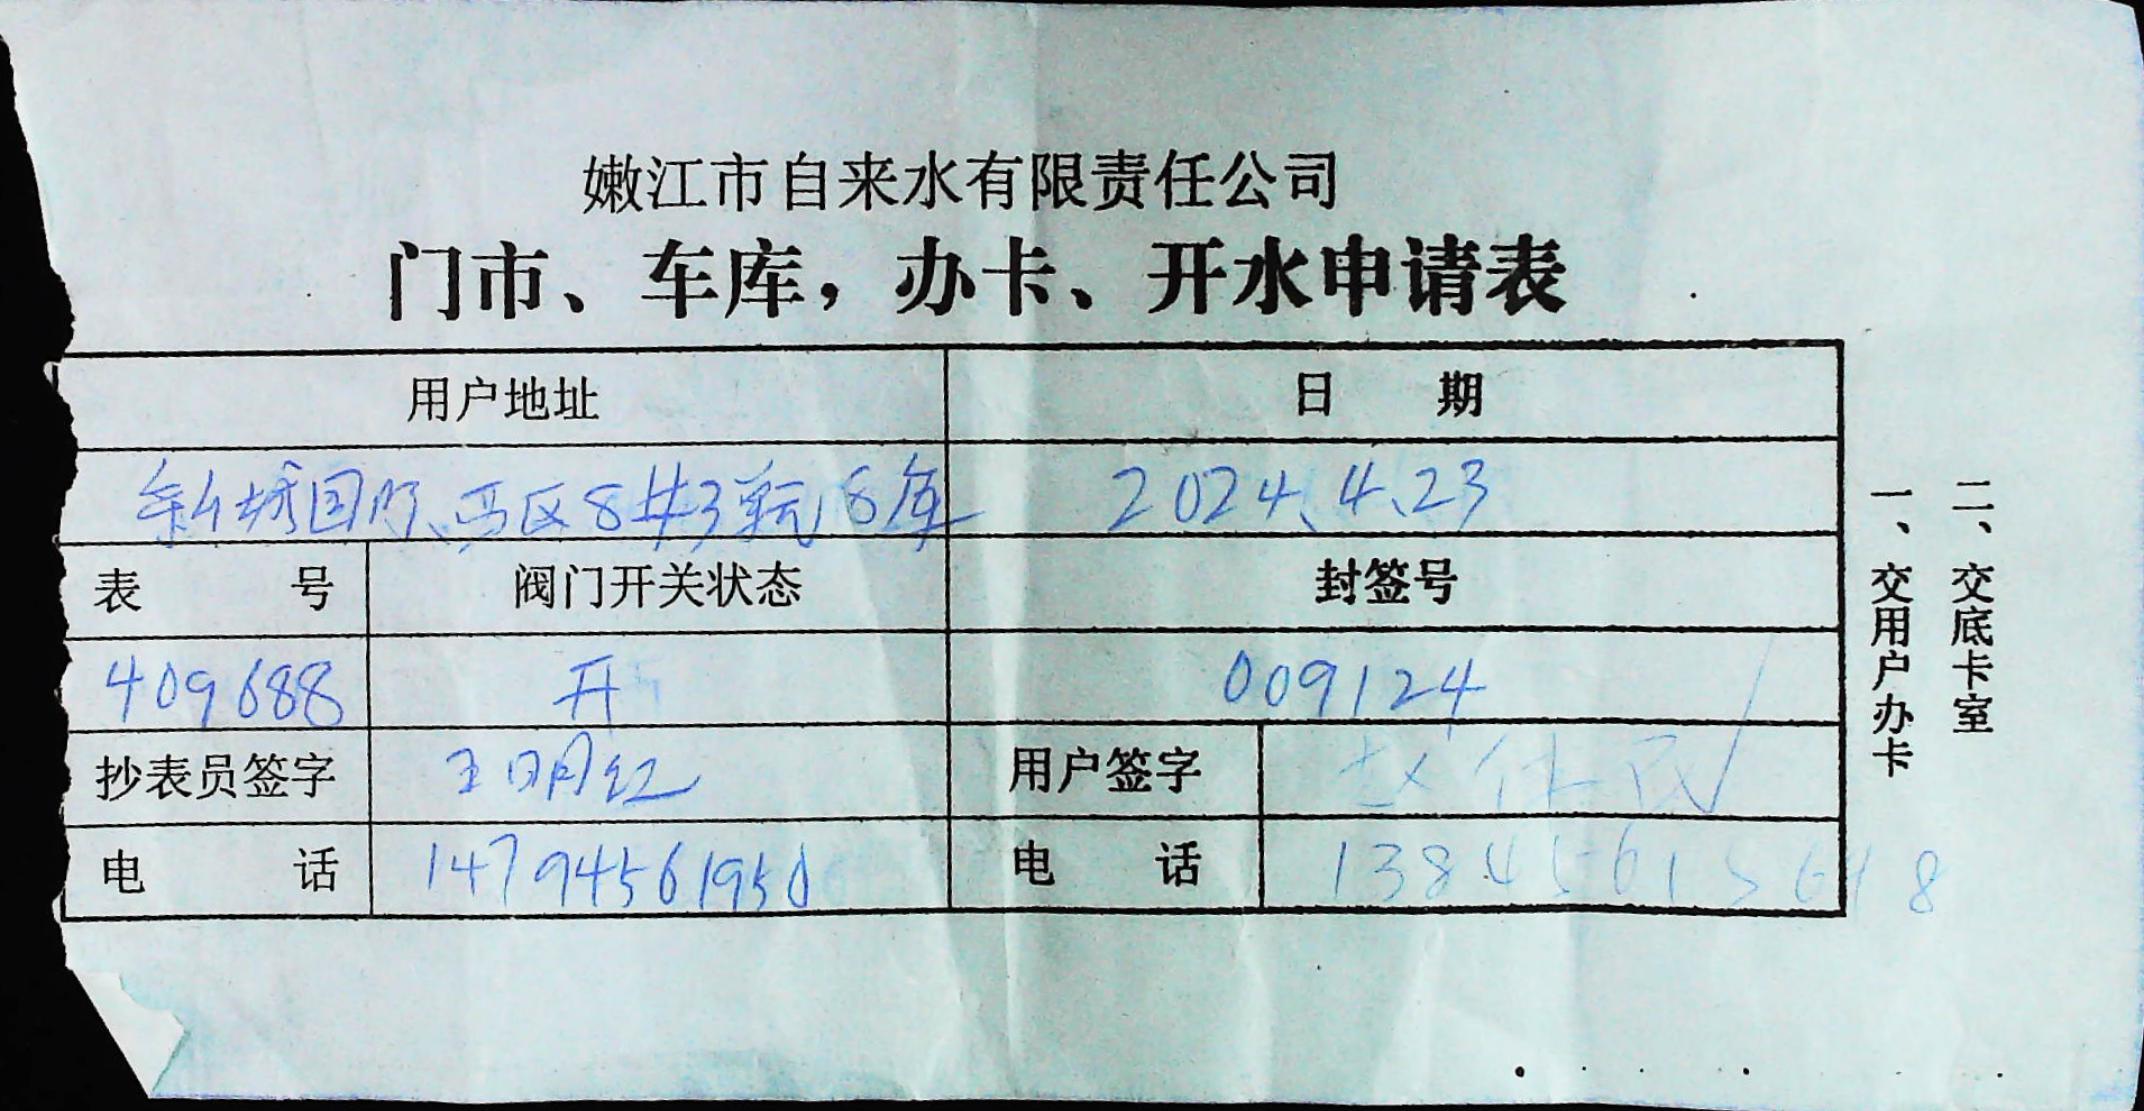 嫩江市自来水有限责任公司
门市、车库，办卡、开水申请表
用户地址 日 期
国际、西区8#3单元8库 2024.4.23
表 号 阀门开关状态 封签号
409688 开 009124
抄表员签字 王明红 用户签字 赵 民
电 话 电 话
一、交用户办卡
二、交底卡室